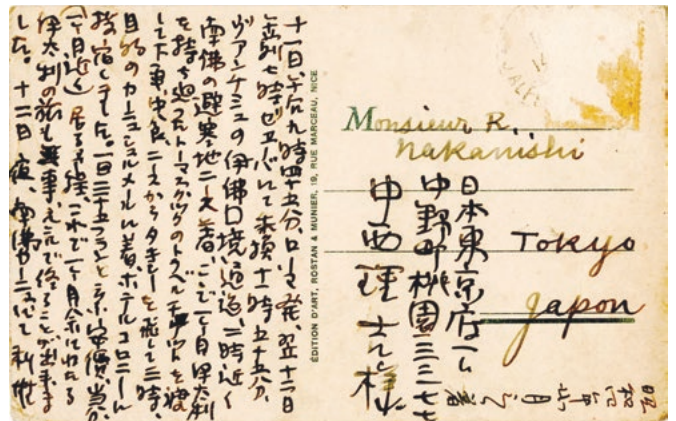 十一日午后九時四十五分、ローマ発、翌十二日
七時ゼノバにて乗換十一時五十五分、
ヴァンチミュの伊佛国境を通過、二時近く
南佛の避寒地ニース着、ここで一ヶ月伊太利
を持ち廻ったトーマスクックのトラベルチケットを渡
して下車、中食、ニースからタキシーを飛して三時、
目的のカーニュシュルメールに着、ホテルコロニーに
投宿しました。一日三十五フランと安價、当分
(一ヶ月近く)居る予定、これで一ヶ月余にわたる
伊太利の旅も無事元気で終ることが出来ま
した。十二日夜、南佛カーニュにて
ÉDITION D'ART, ROSTAN & MUNIER, 19, RUE MARCEAU, NICE
Monsieur R.
Nakanishi
Tokyo
Japon
日本東京府下
中野町桃園三三七七
中西理 様